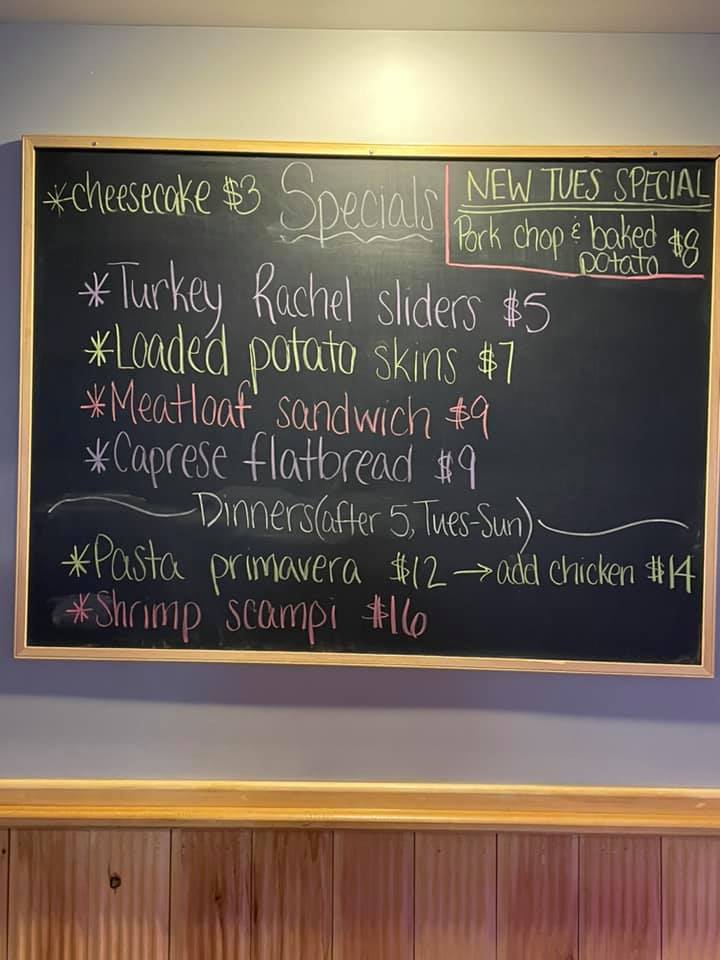 *cheesecake $3
Specials
NEW TUES SPECIAL
Pork chop & baked potato $8
*Turkey Rachel sliders $5
*Loaded potato skins $7
*Meatloaf sandwich $9
*Caprese flatbread $9
Dinners(after 5, Tues-Sun)
*Pasta primavera $12 → add chicken $14
*Shrimp scampi $16